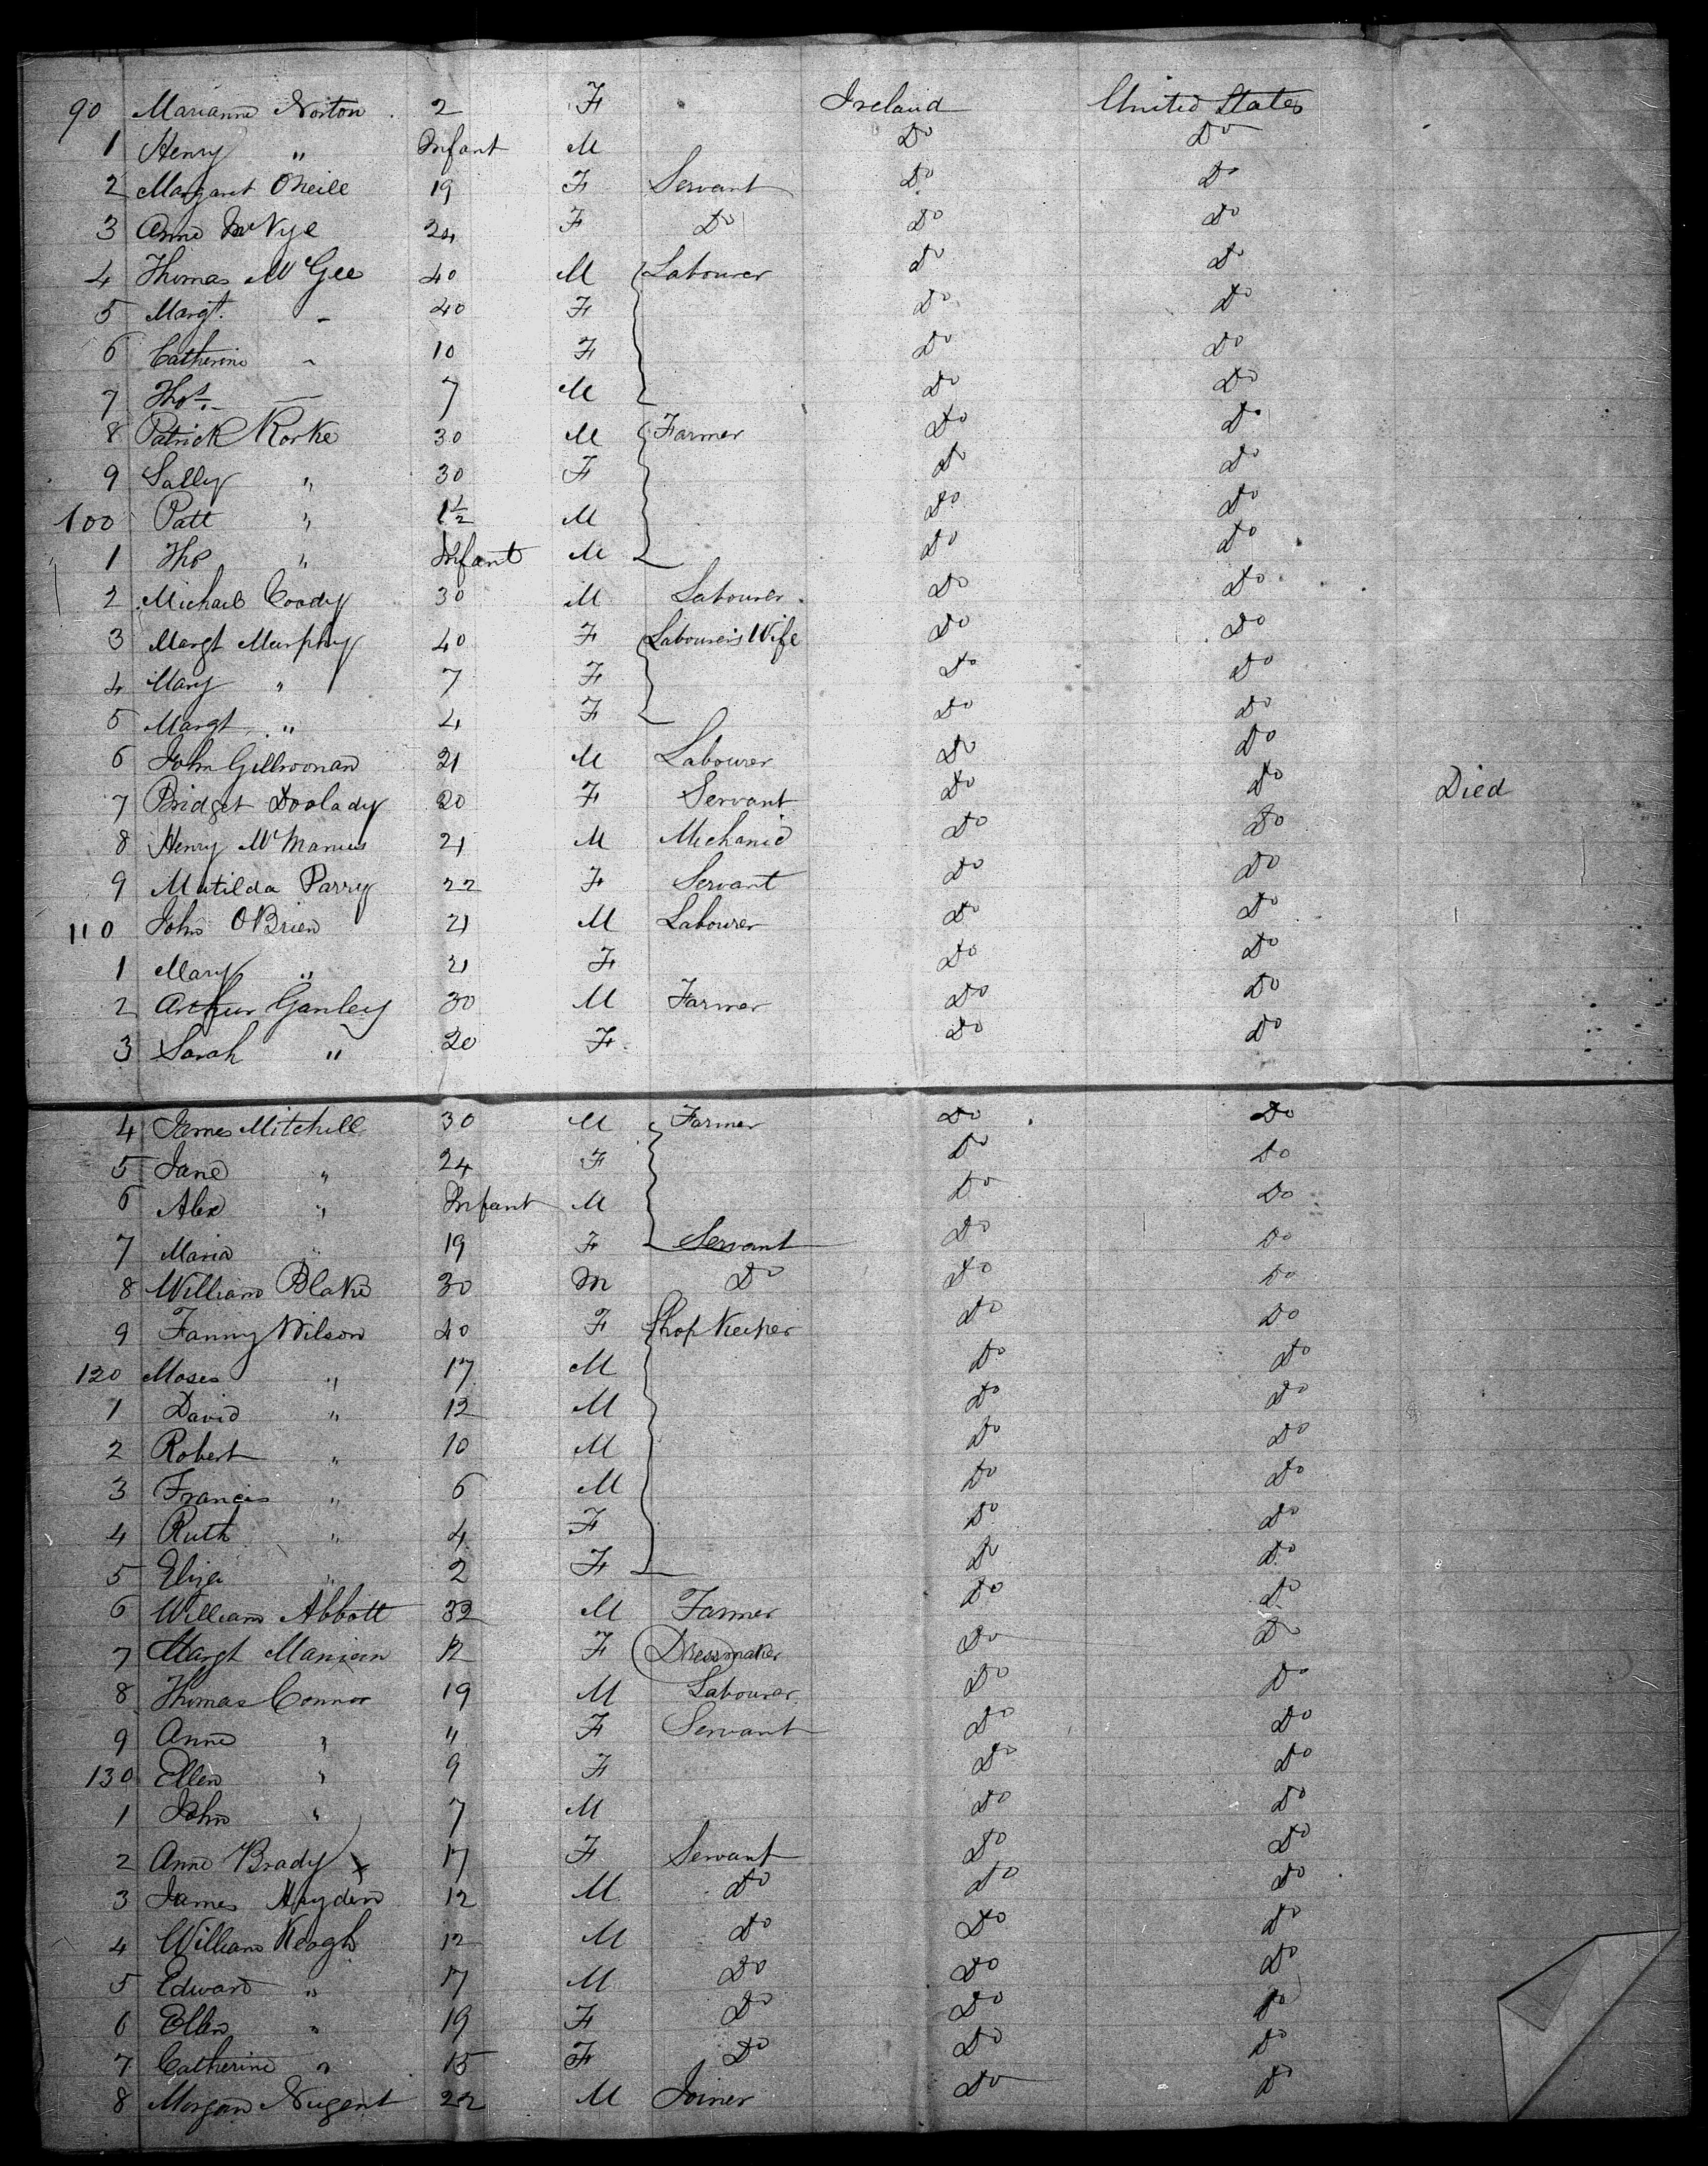 90 Marianne Norton 2 F Ireland United States
1 Henry " Infant M Do Do
2 Margaret ONeill 19 F Servant Do Do
3 Anne 24 F Do Do Do
4 Thomas McGee 40 M Labourer Do Do
5 Margt. " 40 F Do Do
6 Catherine " 10 F Do Do
7 Thos. — 7 M Do Do
8 Patrick Rorke 30 M Farmer Do Do
9 Sally " 30 F Do Do
100 Patt " 1½ M Do Do
1 Tho " Infant M Do Do
2 Michael Coody 30 M Labourer Do Do
3 Margt Murphy 40 F Labourer's Wife Do Do
4 Mary " 7 F Do Do
5 Margt " 4 F Do Do
6 John 21 M Labourer Do Do
7 Bridget Doolady 20 F Servant Do Do Died
8 Henry McManus 21 M Mechanic Do Do
9 Matilda Parry 22 F Servant Do Do
110 John OBrien 21 M Labourer Do Do
1 Mary " 21 F Do Do
2 Arthur Ganley 30 M Farmer Do Do
3 Sarah " 20 F Do Do
4 James Mitchell 30 M Farmer Do Do
5 Jane " 24 F Do Do
6 Alex " Infant M Do Do
7 Maria " 19 F Servant Do Do
8 William Blake 30 M Do Do Do
9 Fanny Wilson 40 F Shop Keeper Do Do
120 Moses " 17 M Do Do
1 David " 12 M Do Do
2 Robert " 10 M Do Do
3 Francis " 6 M Do Do
4 Ruth " 4 F Do Do
5 Eliza " 2 F Do Do
6 William Abbott 32 M Farmer Do Do
7 Margt 12 F Dressmaker Do Do
8 Thomas Connor 19 M Labourer Do Do
9 Anne " " F Servant Do Do
130 Ellen " 9 F Do Do
1 John " 7 M Do Do
2 Anne Brady x 17 F Servant Do Do
3 James Hayden 12 M Do Do Do
4 William Keogh 12 M Do Do Do
5 Edward " 17 M Do Do Do
6 Ellen " 19 F Do Do Do
7 Catherine " 15 F Do Do Do
8 Morgan Nugent 22 M Joiner Do Do